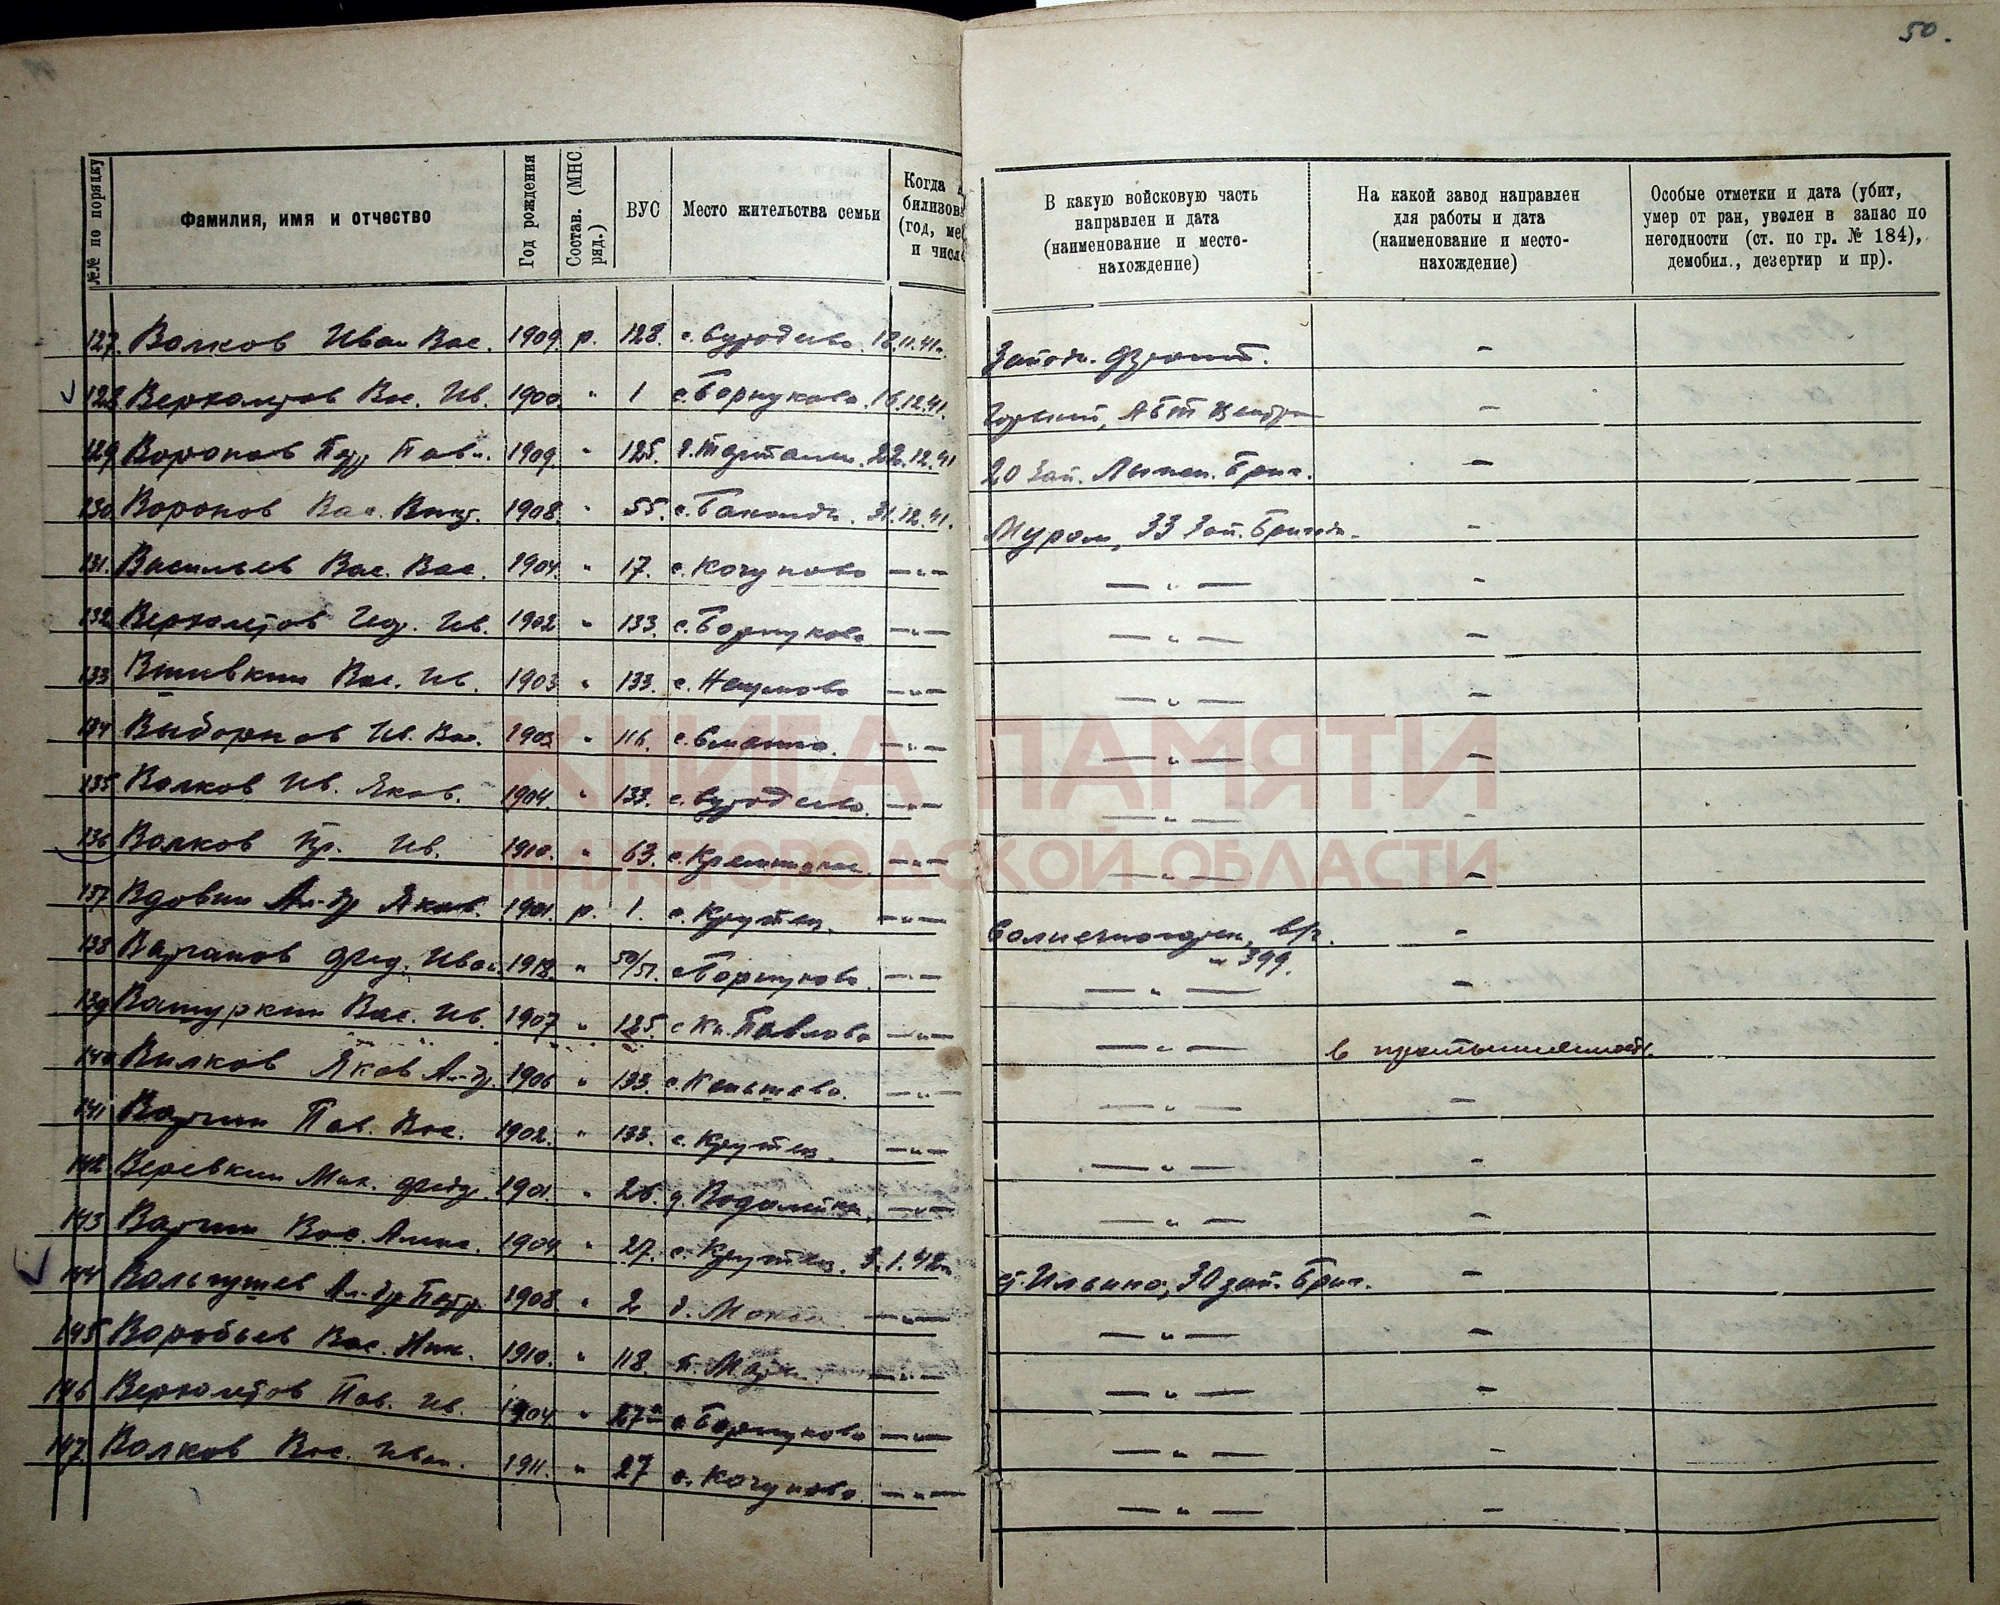 50.
№№ по порядку
Фамилия, имя и отчество
Год рождения
Состав. (МНС, ряд.)
ВУС
Место жительства семьи
Когда
билизов
(год, мес
и число
В какую войсковую часть
направлен и дата
(наименование и место-
нахождение)
На какой завод направлен
для работы и дата
(наименование и место-
нахождение)
Особые отметки и дата (убит,
умер от ран, уволен в запас по
негодности (ст. по гр. № 184),
демобил., дезертир и пр).
127. Волков Иван Вас. 1909. р. 128. с. 18.11.41г. Западн. фронт. -
128 Верхолетов Вас. Ив. 1900. " 1 с. Борнуково. 16.12.41. Горький, АБТ Центр -
129 Воронов Петр Павл. 1909. " 125. 22.12.41 20 Зап. Лыжн. Бриг. -
130 Воронов Вас. 1908. " 55. с. 31.12.41. Муром, 33 Зап. Бригада. -
131. Васильев Вас. Вас. 1904. " 17. с. Кочуново — " — — " — -
132 Верхолетов Ив. 1902 " 133. с. Борнуково — " — — " — -
133 Вшивкин Вас. Ив. 1903 " 133. с. Наумово — " — — " — -
134 Выборнов Ив. Вас. 1903 " 116. с. — " — — " — -
135 Волков Ив. Яков. 1904. " 133. с. — " — — " — -
136 Волков Гр. Ив. 1910. " 63. с. — " — — " — -
137 Вдовин Ал-др Яков. 1901. р. 1. с. Крутец. — " — Солнечногорск, в/ч -
" 399.
138 Варганов Фед. Иван. 1918. " 50/51. с. Борнуково. — " — — " — -
139 Вашуркин Вас. Ив. 1907 " 125. с. Кн. Павлово — " — — " — в промышленность.
140 Вилков Яков Ал-др. 1906 " 133. с. — " — — " — -
141 Варгин Пав. Вас. 1902. " 133. с. Крутец. — " — — " — -
142 Веревкин Мих. Федр. 1901. " 26. д. Водолейка. — " — — " — -
143 Варгин Вас. Алекс. 1904 " 27. с. Крутец. 3.1.42г. ст. Ильино, 30 зап. Бриг. -
144 Вольгушев Ал-др Петр. 1908 " 2 д. — " — — " — -
145 Воробьев Вас. Ник. 1910. " 118. — " — — " — -
146 Верхолетов Пав. Ив. 1904 " 27а с. Борнуково — " — — " — -
147. Волков Вас. Иван. 1911. " 27 с. Кочуново. — " — — " — -
КНИГА ПАМЯТИ
НИЖЕГОРОДСКОЙ ОБЛАСТИ